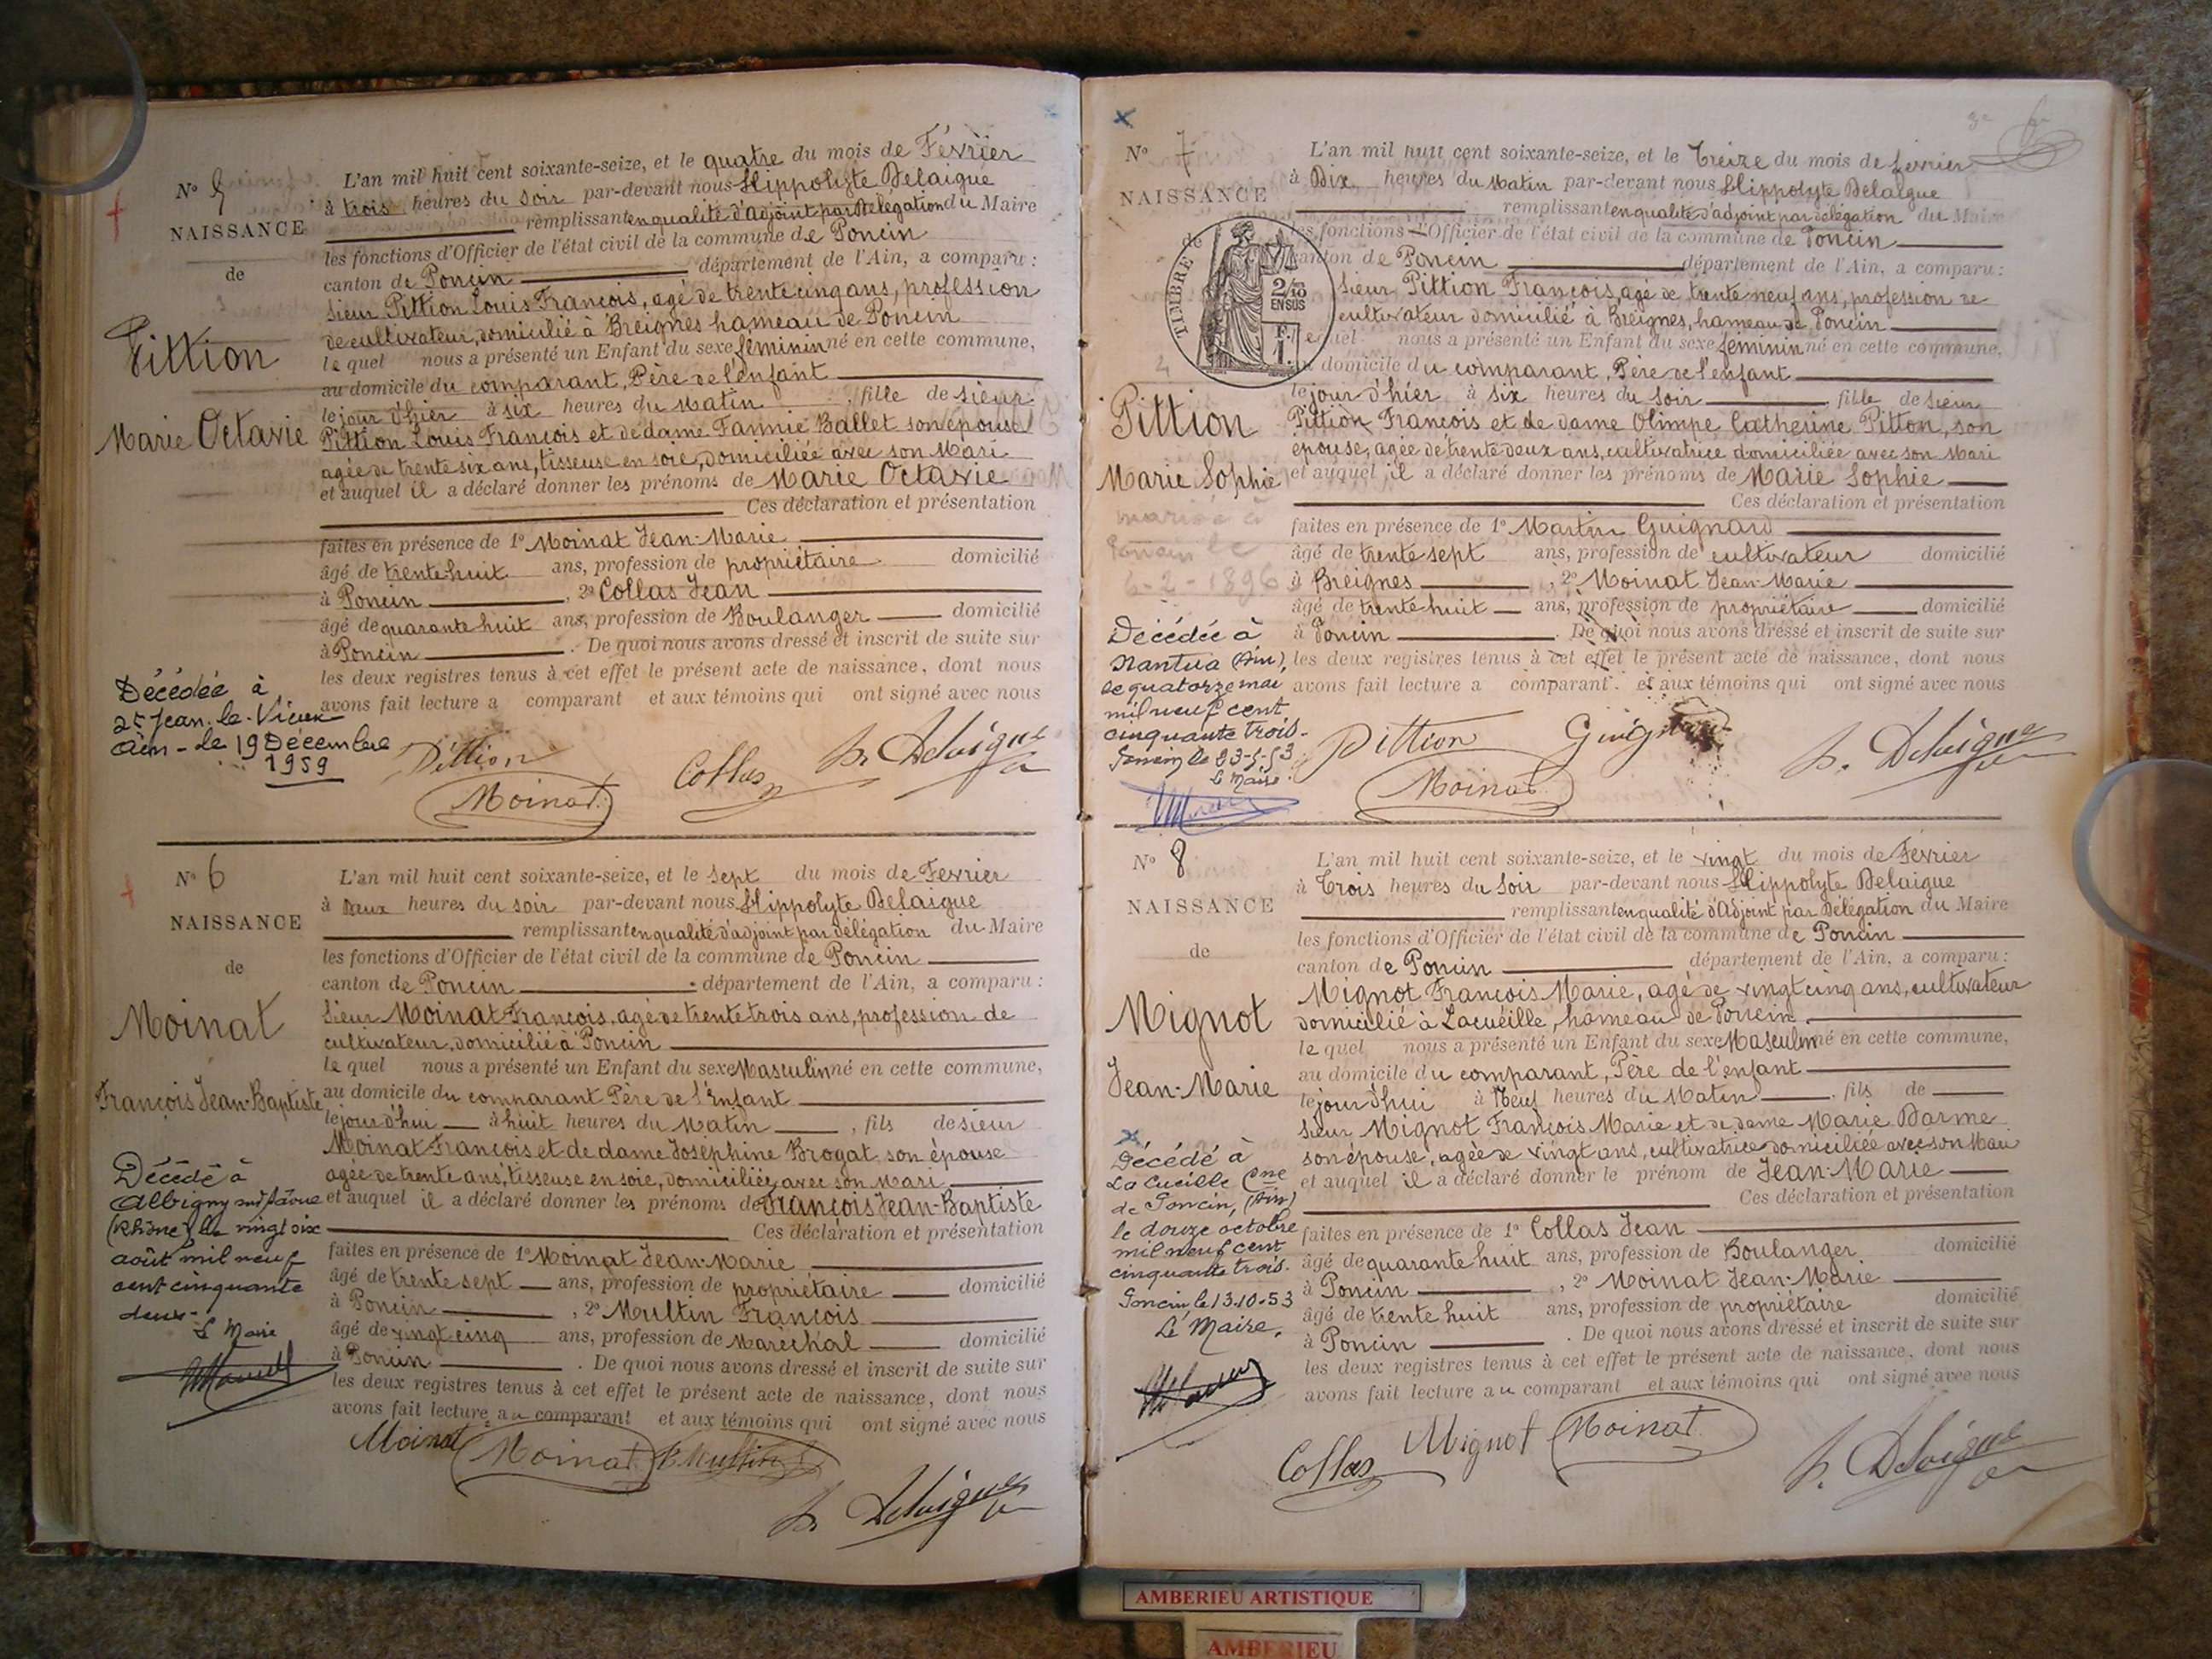 N° 5
NAISSANCE
de
Pittion
Marie Octavie
Décédée à
St Jean-le-Vieux
Ain - le 19 Décembre
1959
L'an mil huit cent soixante-seize, et le quatre du mois de Février
à trois heures du soir par-devant nous Hippolyte Delaigue
remplissant en qualité d'adjoint par délégation du Maire
les fonctions d'Officier de l'état civil de la commune de Poncin
canton de Poncin département de l'Ain, a comparu :
sieur Pittion Louis François, agé de trente cinq ans, profession
de cultivateur, domicilié à Breignes hameau de Poncin
le quel nous a présenté un Enfant du sexe féminin né en cette commune,
au domicile du comparant, Père de l'enfant
le jour d'hier à six heures du Matin, fille de sieur
Pittion Louis François et de dame Fannie Ballet son épouse
agée de trente six ans, tisseuse en soie, domiciliée avec son Mari
et auquel il a déclaré donner les prénoms de Marie Octavie
Ces déclaration et présentation
faites en présence de 1° Moinat Jean-Marie
âgé de trente huit ans, profession de propriétaire domicilié
à Poncin, 2° Collas Jean
âgé de quarante huit ans, profession de Boulanger domicilié
à Poncin. De quoi nous avons dressé et inscrit de suite sur
les deux registres tenus à cet effet le présent acte de naissance, dont nous
avons fait lecture a comparant et aux témoins qui ont signé avec nous
Pittion Collas h. Delaigue
Moinat
N° 6
NAISSANCE
de
Moinat
François Jean-Baptiste
Décédé à
Albigny sur Saône
(Rhône) le vingt six
août mil neuf
cent cinquante
deux
Le Maire
L'an mil huit cent soixante-seize, et le sept du mois de Fevrier
à deux heures du soir par-devant nous Hippolyte Delaigue
remplissant en qualité d'adjoint par délégation du Maire
les fonctions d'Officier de l'état civil de la commune de Poncin
canton de Poncin département de l'Ain, a comparu :
sieur Moinat François, agé de trente trois ans, profession de
cultivateur, domicilié à Poncin
le quel nous a présenté un Enfant du sexe Masculin né en cette commune,
au domicile du comparant Père de l'Enfant
le jour d'hui à huit heures du Matin, fils de sieur
Moinat François et de dame Joséphine Brogat son épouse
agée de trente ans, tisseuse en soie, domiciliée avec son Mari
et auquel il a déclaré donner les prénoms de François Jean-Baptiste
Ces déclaration et présentation
faites en présence de 1° Moinat Jean-Marie
âgé de trente sept ans, profession de propriétaire domicilié
à Poncin, 2° Multin François
âgé de vingt cinq ans, profession de Marechal domicilié
à Poncin. De quoi nous avons dressé et inscrit de suite sur
les deux registres tenus à cet effet le présent acte de naissance, dont nous
avons fait lecture au comparant et aux témoins qui ont signé avec nous
Moinat Moinat Multin
h. Delaigue
N° 7
NAISSANCE
de
TIMBRE
2/10
EN SUS
F.
1.
Pittion
Marie Sophie
mariée à
Poncin le
6-2-1896
Décédée à
Nantua (Ain),
le quatorze mai
mil neuf cent
cinquante trois.
Poncin le 23-5-53
Le Maire.
L'an mil huit cent soixante-seize, et le treize du mois de fevrier
à Dix heures du Matin par-devant nous Hippolyte Delaigue
remplissant en qualité d'adjoint par délégation du Maire
les fonctions d'Officier de l'état civil de la commune de Poncin
canton de Poncin département de l'Ain, a comparu :
sieur Pittion François, agé de trente neuf ans, profession de
cultivateur domicilié à Breignes, hameau de Poncin
lequel nous a présenté un Enfant du sexe féminin né en cette commune,
au domicile du comparant, Père de l'enfant
le jour d'hier à six heures du soir, fille de sieur
Pittion François et de dame Olimpe Catherine Pitton, son
épouse, agée de trente deux ans, cultivatrice domiciliée avec son Mari
et auquel il a déclaré donner les prénoms de Marie Sophie
Ces déclaration et présentation
faites en présence de 1° Martin Guignard
âgé de trente sept ans, profession de cultivateur domicilié
à Breignes, 2° Moinat Jean-Marie
âgé de trente huit ans, profession de propriétaire domicilié
à Poncin. De quoi nous avons dressé et inscrit de suite sur
les deux registres tenus à cet effet le présent acte de naissance, dont nous
avons fait lecture a comparant. et aux témoins qui ont signé avec nous
Pittion h. Delaigue
Moinat
N° 8
NAISSANCE
de
Mignot
Jean-Marie
Décédé à
La Cueille Cne
de Poncin, (Ain)
le douze octobre
mil neuf cent
cinquante trois.
Poncin le 13.10.53
Le Maire,
L'an mil huit cent soixante-seize, et le vingt du mois de Février
à trois heures du soir par-devant nous Hippolyte Delaigue
remplissant en qualité d'Adjoint par Délégation du Maire
les fonctions d'Officier de l'état civil de la commune de Poncin
canton de Poncin département de l'Ain, a comparu :
Mignot François Marie, agé de vingt cinq ans, cultivateur
domicilié à Lacuëille, hameau de Poncin
le quel nous a présenté un Enfant du sexe Masculin né en cette commune,
au domicile du comparant, Père de l'enfant
le jour d'hui à Neuf heures du Matin, fils de
sieur Mignot François Marie et de dame Marie Darme
son épouse, agée de vingt ans, cultivatrice domiciliée avec son Mari
et auquel il a déclaré donner le prénom de Jean-Marie
Ces déclaration et présentation
faites en présence de 1° Collas Jean
âgé de quarante huit ans, profession de Boulanger domicilié
à Poncin, 2° Moinat Jean-Marie
âgé de trente huit ans, profession de propriétaire domicilié
à Poncin. De quoi nous avons dressé et inscrit de suite sur
les deux registres tenus à cet effet le présent acte de naissance, dont nous
avons fait lecture au comparant et aux témoins qui ont signé avec nous
Collas Mignot Moinat h. Delaigue
AMBERIEU ARTISTIQUE
AMBERIEU